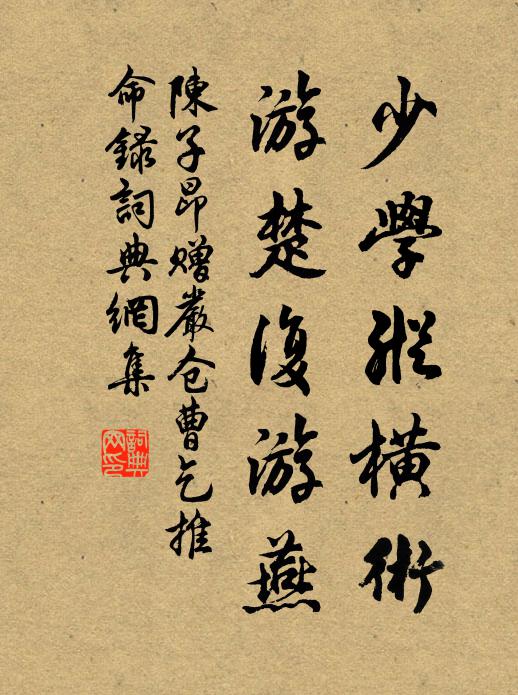 少學縱橫術
游楚復游燕
陳子昂贈嚴仓曹乞推
命録詞典網集
詞典
网印